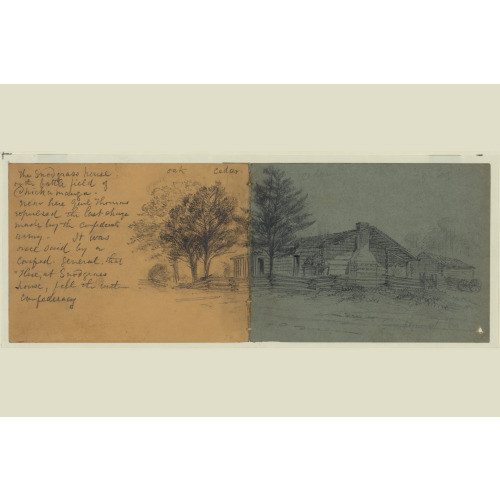 The Snodgrass house
on the battle field of
Chickamauga.
near here Genl. Thomas
repulsed the last charge
made by the Confederate
army. It was
once said by a
General that
"Here, at Snodgrass
house, fell the
Confederacy
oak
Cedar